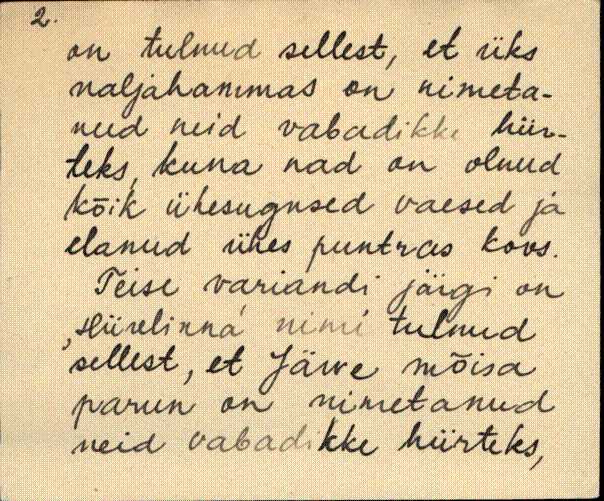 2.
on tulnud sellest, et üks
naljahammas on nimeta-
nud neid vabadikke hiir-
teks, kuna nad on olnud
kõik ühesugused vaesed ja
elanud ühes puntras koos.
Teise variandi järgi on
„Hiirelinna" nimi tulnud
sellest, et Järve mõisa
parun on nimetanud
neid vabadikke hiirteks,